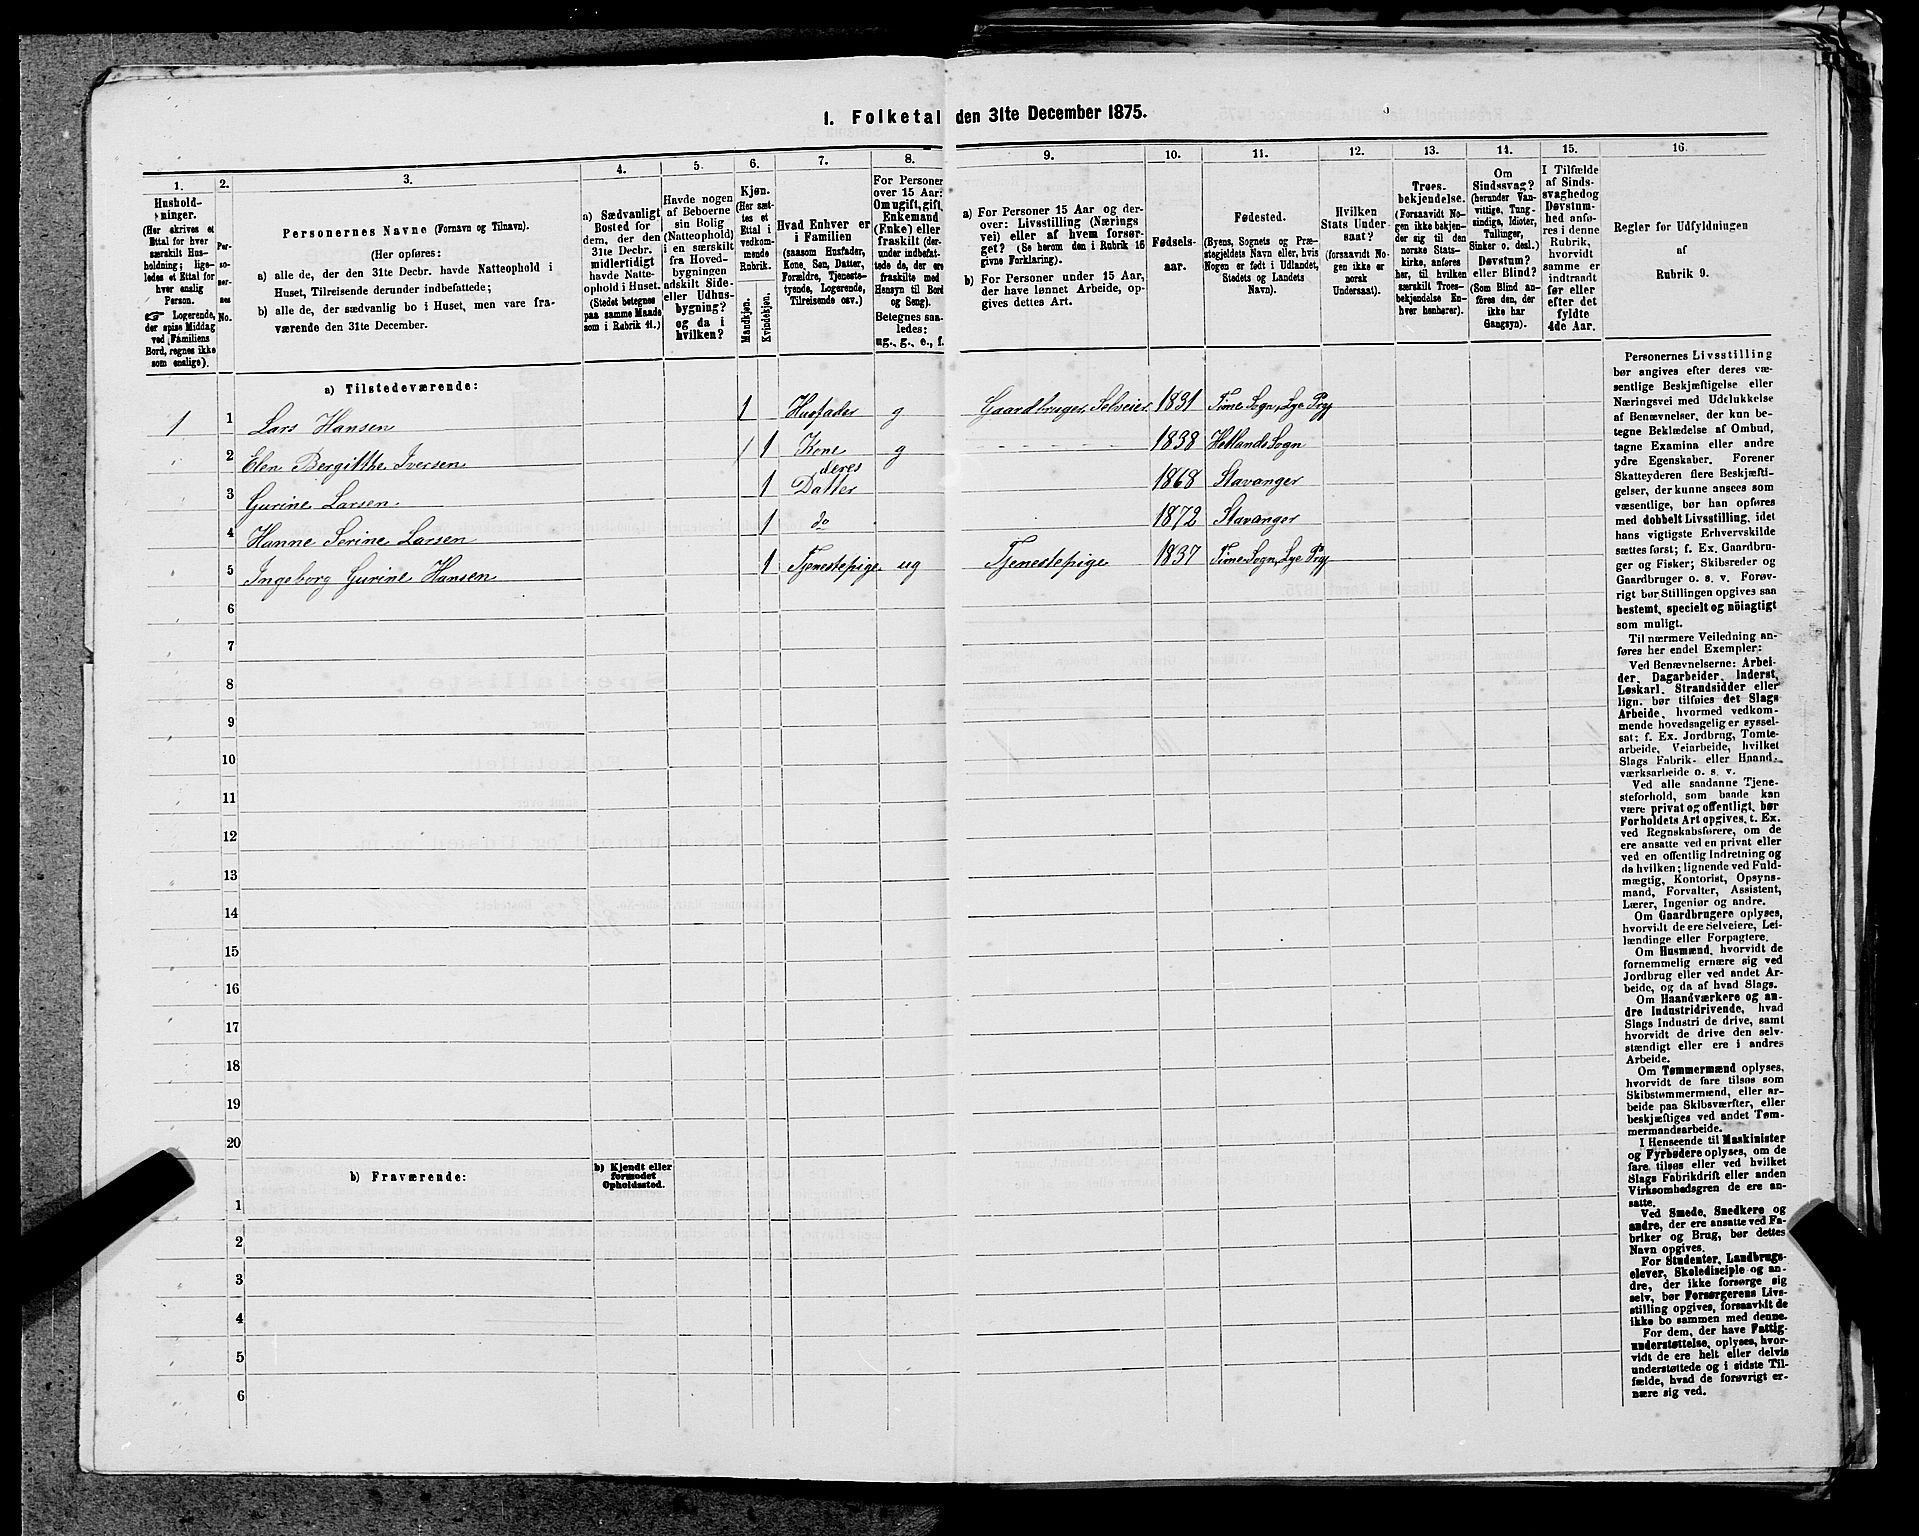 1. Folketal den 31te December 1875.
1.
Hushold-
ninger.
(Her skrives et
Ettal for hver
særskilt Hus-
holdning; lige-
ledes et Ettal for
hver enslig
Person.
☞ Logerende,
der spise Middag
ved Familiens
Bord, regnes ikke
som enslige).
2.
Per-
so-
ner-
nes
No.
3.
Personernes Navne (Fornavn og Tilnavn).
(Her opføres:
a) alle de, der den 31te Decbr. havde Natteophold i
Huset, Tilreisende derunder indbefattede;
b) alle de, der sædvanlig bo i Huset, men vare fra-
værende den 31te December.
4.
a) Sædvanligt
Bosted for
dem, der den
31te Decbr.
midlertidigt
havde Natte-
ophold i Huset.
(Stedet betegnes
paa samme Maade
som i Rubrik 11.)
5.
Havde nogen
af Beboerne
sin Bolig
(Natteophold)
i en særskilt
fra Hoved-
bygningen
adskilt Side-
eller Udhus-
bygning?
og da i
hvilken?
6.
Kjøn.
(Her sæt-
tes et
Ettal i
vedkom-
mende
Rubrik.
Mandkjøn.
Kvindekjøn.
7.
Hvad Enhver er
i Familien
(saasom Husfader,
Kone, Søn, Datter,
Forældre, Tjeneste-
tyende, Logerende,
Tilreisende osv.)
8.
For Personer
over 15 Aar:
Om ugift, gift,
Enkemand
(Enke) eller
fraskilt (der-
under indbefat-
tede de, der ere
fraskilte med
Hensyn til Bord
og Seng).
Betegnes saa-
ledes:
ug., g., e., f.
9.
a) For Personer 15 Aar og der-
over: Livsstilling (Nærings
vei) eller af hvem forsør-
get? (Se herom den i Rubrik 16
givne Forklaring).
b) For Personer under 15 Aar,
der have lønnet Arbeide, op-
gives dettes Art.
10.
Fødsels-
aar.
11.
Fødested.
(Byens, Sognets og Præ-
stegjeldets Navn eller, hvis
Nogen er født i Udlandet,
Stedets og Landets
Navn).
12.
Hvilken
Stats Under-
saat?
(forsaavidt No-
gen ikke er
norsk
Undersaat).
13.
Troes-
bekjendelse.
(Forsaavidt No-
gen ikke bekjen-
der sig til den
norske Stats-
kirke, anføres
her, til hvilken
særskilt Troes-
bekjendelse En-
hver henhører).
14.
Om
Sindssvag?
(herunder Van-
vittige, Tung-
sindige, Idioter,
Tullinger,
Sinker o. desl.)
Døvstum?
eller Blind?
(Som Blind an-
føres den, der
ikke har
Gangsyn).
15.
I Tilfælde
af Sinds-
svaghed og
Døvstum-
hed anfø-
res i denne
Rubrik,
hvorvidt
samme er
indtraadt
før eller
efter det
fyldte
4de Aar.
16.
Regler for Udfyldningen
af
Rubrik 9.
a) Tilstedeværende:
1 1 Lars Hansen 1 Husfader g Gaardbruger, Selveier 1831 Time Sogn, Lye Prgj
2 Elen Bergitthe Iversen 1 Kone g 1838 Hetlands Sogn
3 Gurine Larsen. 1 deres Datter 1868 Stavanger
4 Hanne Serine Larsen 1 do 1872 Stavanger
5 Ingeborg Gurine Hansen 1 Tjenestepige ug Tjenestepige 1837 Time Sogn, Lye Prgj
6
7
8
9
10
11
12
13
14
15
16
17
18
19
20
b) Fraværende:
b) Kjendt eller
formodet
Opholdssted.
1
2
3
4
5
6
Personernes Livsstilling
bør angives efter deres væ-
sentlige Beskjæftigelse eller
Næringsvei med Udelukkelse
af Benævnelser, der kun be-
tegne Beklædelse af Ombud,
tagne Examina eller andre
ydre Egenskaber. Forener
Skatteyderen flere Beskjæfti-
gelser, der kunne ansees som
væsentlige, bør han opføres
med dobbelt Livsstilling, idet
hans vigtigste Erhvervskilde
sættes først; f. Ex. Gaardbru-
ger og Fisker; Skibsreder og
Gaardbruger o. s. v. Forøv-
rigt bør Stillingen opgives saa
bestemt, specielt og nöiagtigt
som muligt.
Til nærmere Veiledning an-
føres her endel Exempler:
Ved Benævnelserne: Arbei-
der, Dagarbeider, Inderst,
Løskarl, Strandsidder eller
lign. bør tilføies det Slags
Arbeide, hvormed vedkom-
mende hovedsagelig er syssel-
sat; f. Ex. Jordbrug, Tomte-
arbeide, Veiarbeide, hvilket
Slags Fabrik- eller Haand-
værksarbeide o. s. v.
Ved alle saadanne Tjene-
steforhold, som baade kan
være privat og offentligt, bør
Forholdets Art opgives, t. Ex.
ved Regnskabsførere, om de
ere ansatte ved en privat eller
ved en offentlig Indretning og
da hvilken; lignende ved Fuld-
mægtig, Kontorist, Opsyns-
mand, Forvalter, Assistent,
Lærer, Ingeniør og andre.
Om Gaardbrugere oplyses,
hvorvidt de ere Selveiere, Lei-
lændinge eller Forpagtere.
Om Husmænd, hvorvidt de
fornemmelig ernære sig ved
Jordbrug eller ved andet Ar-
beide, og da af hvad Slags.
Om Haandværkere og an-
dre Industridrivende, hvad
Slags Industri de drive, samt
hvorvidt de drive den selv-
stændigt eller ere i andres
Arbeide.
Om Tømmermænd oplyses,
hvorvidt de fare tilsøs som
Skibstømmermænd, eller ar-
beide paa Skibsværfter, eller
beskjæftiges ved andet Tøm-
mermandsarbeide.
I Henseende til Maskinister
og Fyrbødere oplyses, om de
fare tilsøs eller ved hvilket
Slags Fabrikdrift eller anden
Virksomhedsgren de ere an-
satte.
Ved Smede, Snedkere og
andre, der ere ansatte ved Fa-
briker og Brug, bør dettes
Navn opgives.
For Studenter, Landbrugs-
elever, Skoledisciple og an-
dre, der ikke forsørge sig
selv, bør Forsørgerens Livs-
stilling opgives, forsaavidt de
ikke bo sammen med denne.
For dem, der have Fattig-
understøttelse, oplyses, hvor-
vidt de ere helt eller delvis
understøttede og i sidste Til-
fælde, hvad de forøvrigt er-
nære sig ved.